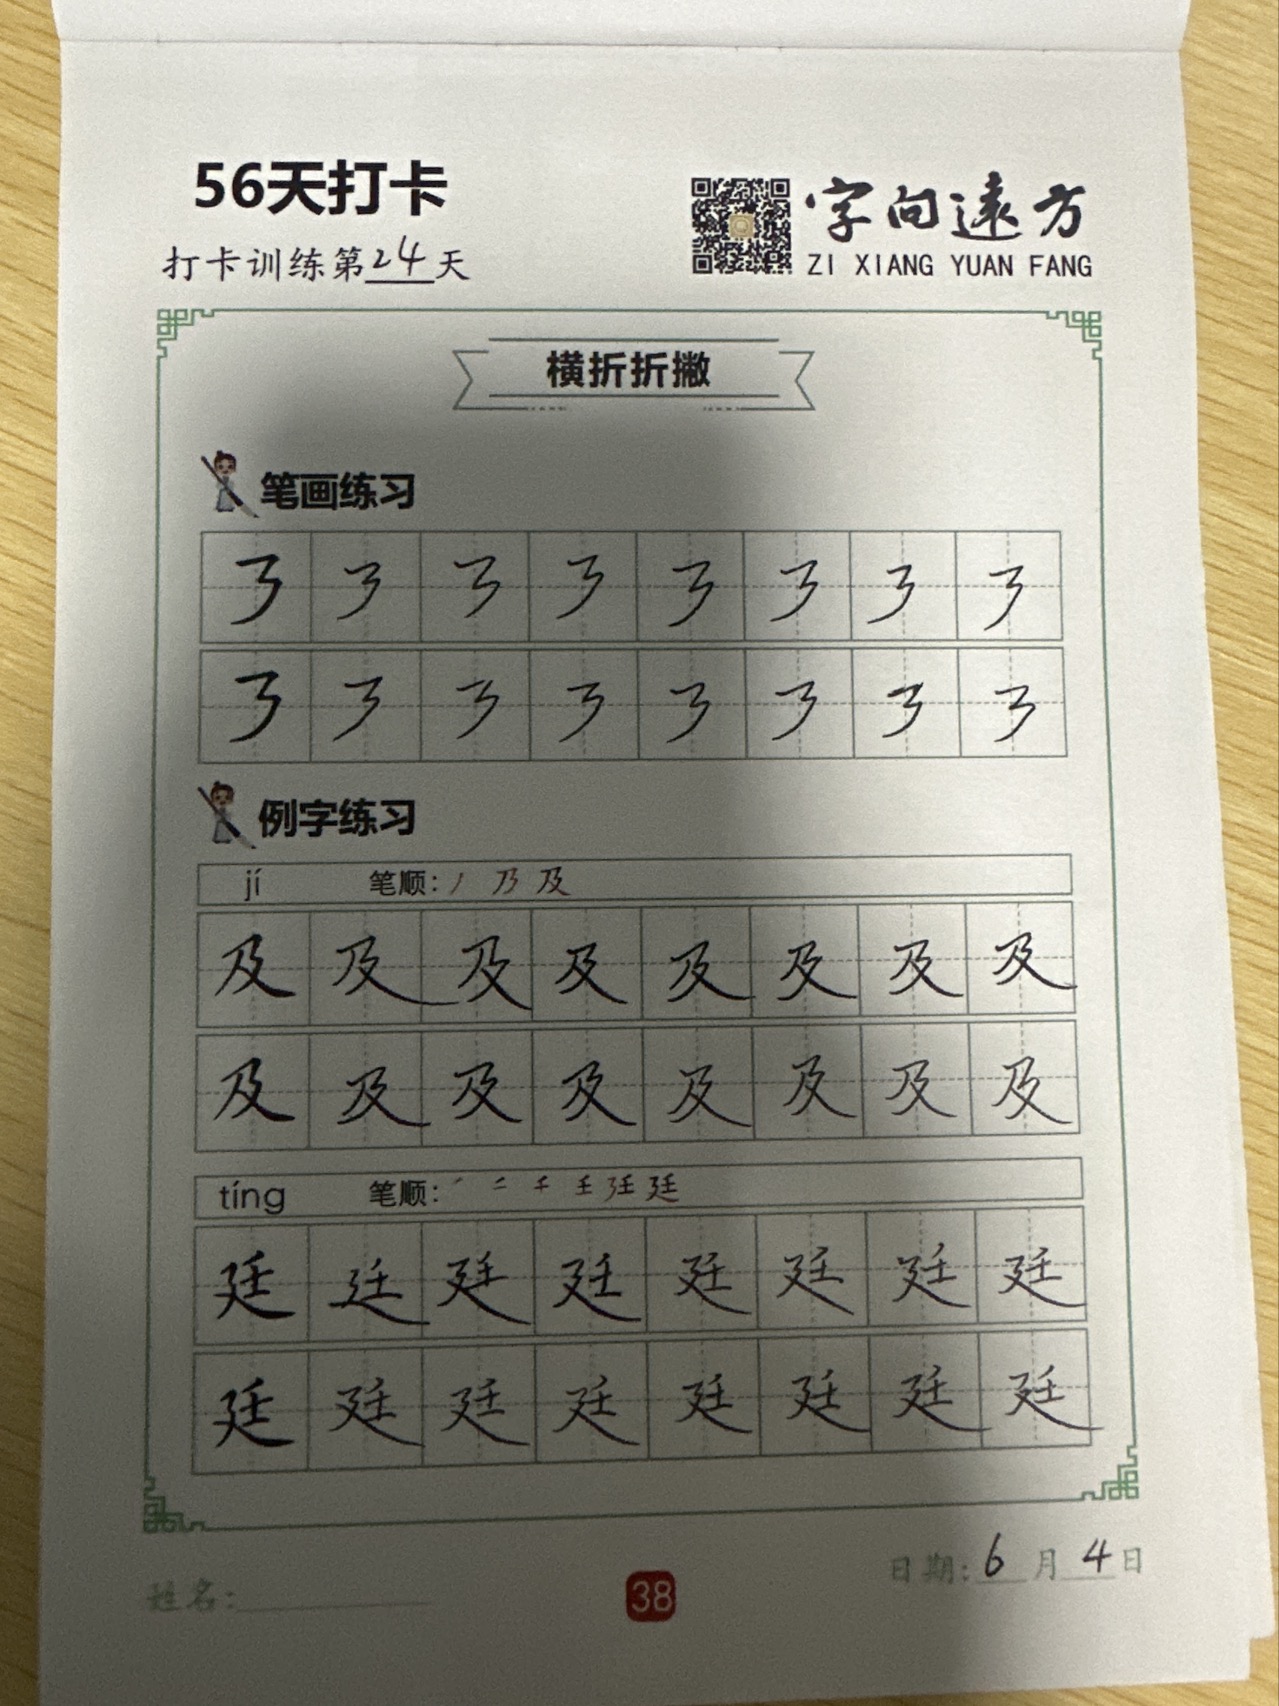 56天打卡
打卡训练第24天
字向远方
ZI XIANG YUAN FANG
横折折撇
笔画练习
例字练习
jí 笔顺：丿 乃 及
及 及 及 及 及 及 及 及
及 及 及 及 及 及 及 及
tíng 笔顺：㇒ 二 千 壬 廷 廷
廷 廷 廷 廷 廷 廷 廷 廷
廷 廷 廷 廷 廷 廷 廷 廷
日期：6月4日
姓名：
38